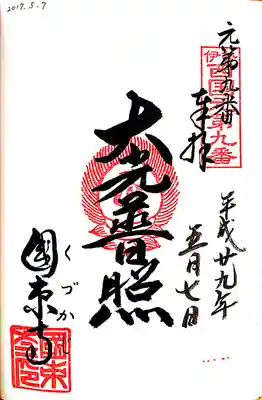 2017.5.7
元第九番
第九番
奉拝
平成廿九年
五月七日
大光普照
國束寺
くづか